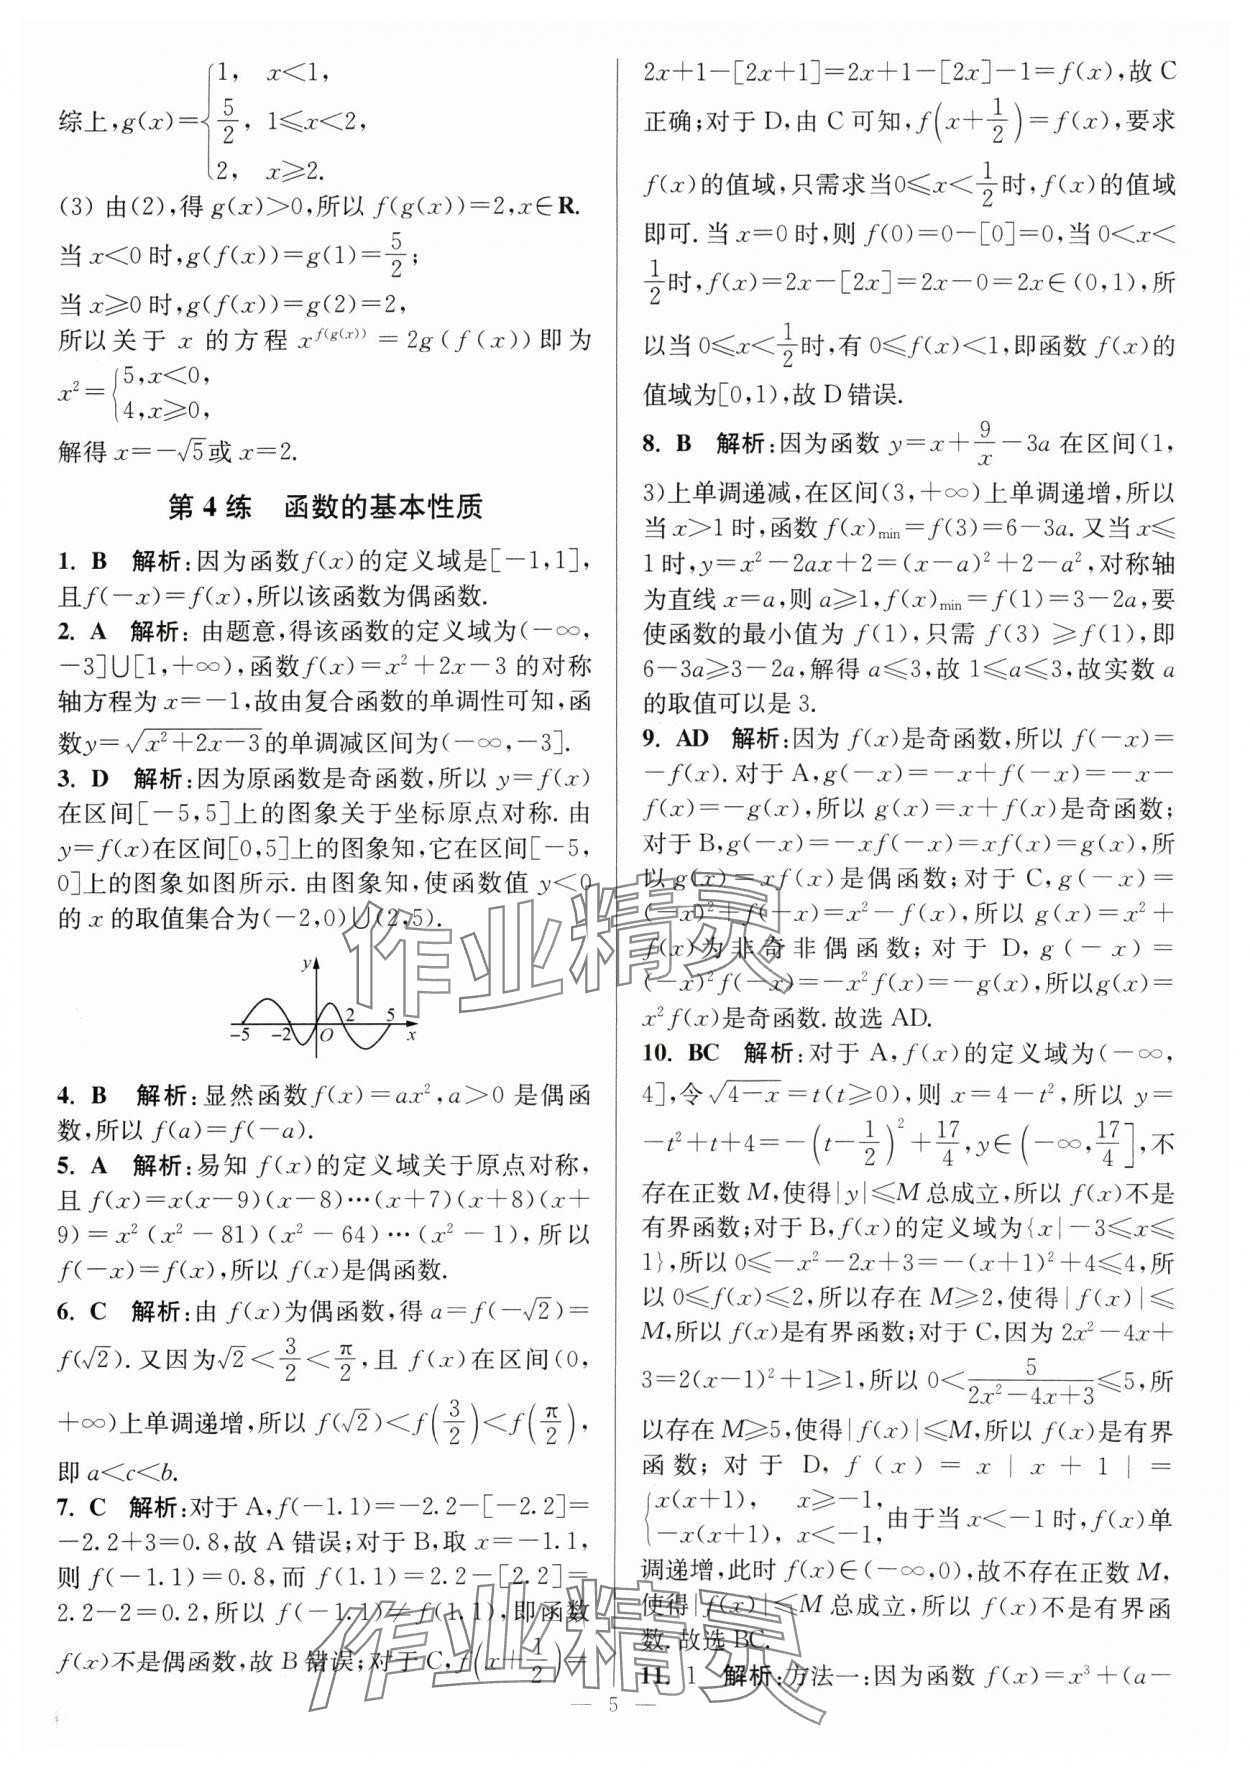 综上,g(x)={1, x<1,
5/2, 1≤x<2,
2, x≥2.
(3) 由(2),得 g(x)>0,所以 f(g(x))=2,x∈R.
当 x<0 时,g(f(x))=g(1)=5/2;
当 x≥0 时,g(f(x))=g(2)=2,
所以关于 x 的方程 x^{f(g(x))}=2g(f(x))即为
x²={5,x<0,
4,x≥0,
解得 x=-√5或 x=2.
第 4 练 函数的基本性质
1. B 解析:因为函数f(x)的定义域是[-1,1],
且f(-x)=f(x),所以该函数为偶函数.
2. A 解析: 由题意,得该函数的定义域为(-∞,
-3]∪[1,+∞),函数f(x)=x²+2x-3 的对称
轴方程为 x=-1,故由复合函数的单调性可知,函
数y=√(x²+2x-3)的单调减区间为(-∞,-3].
3. D 解析:因为原函数是奇函数,所以 y=f(x)
在区间[-5,5]上的图象关于坐标原点对称. 由
y=f(x)在区间[0,5]上的图象知,它在区间[-5,
0]上的图象如图所示. 由图象知,使函数值 y<0
的 x 的取值集合为(-2,0)∪(2,5).
y
-5 -2 O 2 5 x
4. B 解析:显然函数f(x)=ax²,a>0 是偶函
数,所以 f(a)=f(-a).
5. A 解析:易知 f(x)的定义域关于原点对称,
且 f(x)=x(x-9)(x-8)…(x+7)(x+8)(x+
9)=x²(x²-81)(x²-64)…(x²-1),所以
f(-x)=f(x),所以 f(x)是偶函数.
6. C 解析:由 f(x)为偶函数,得 a=f(-√2)=
f(√2). 又因为√2<3/2<π/2,且 f(x)在区间(0,
+∞)上单调递增,所以 f(√2)<f(3/2)<f(π/2),
即 a<c<b.
7. C 解析:对于 A,f(-1.1)=-2.2-[-2.2]=
-2.2+3=0.8,故 A 错误;对于 B,取 x=-1.1,
则 f(-1.1)=0.8,而 f(1.1)=2.2-[2.2]=
2.2-2=0.2,所以 f(-1.1)≠f(1.1),即函数
f(x)不是偶函数,故 B 错误;对于 C,f(x+1/2)=
2x+1-[2x+1]=2x+1-[2x]-1=f(x),故 C
正确;对于 D,由 C 可知,f(x+1/2)=f(x),要求
f(x)的值域,只需求当0≤x<1/2时,f(x)的值域
即可. 当 x=0 时,则 f(0)=0-[0]=0,当 0<x<
1/2时,f(x)=2x-[2x]=2x-0=2x∈(0,1),所
以当 0≤x<1/2时,有 0≤f(x)<1,即函数 f(x)的
值域为[0,1),故 D 错误.
8. B 解析:因为函数 y=x+9/x-3a 在区间(1,
3)上单调递减,在区间(3,+∞)上单调递增,所以
当 x>1 时,函数 f(x)min=f(3)=6-3a. 又当 x≤
1时,y=x²-2ax+2=(x-a)²+2-a²,对称轴
为直线 x=a,则 a≥1,f(x)min=f(1)=3-2a,要
使函数的最小值为 f(1),只需 f(3)≥f(1),即
6-3a≥3-2a,解得 a≤3,故 1≤a≤3,故实数 a
的取值可以是 3.
9. AD 解析:因为 f(x)是奇函数,所以 f(-x)=
-f(x). 对于 A,g(-x)=-x+f(-x)=-x-
f(x)=-g(x),所以 g(x)=x+f(x)是奇函数;
对于 B,g(-x)=-xf(-x)=xf(x)=g(x),所
以 g(x)=xf(x)是偶函数;对于 C,g(-x)=
(-x)²+f(-x)=x²-f(x),所以 g(x)=x²+
f(x)为非奇非偶函数;对于 D,g(-x)=
(-x)²f(-x)=-x²f(x)=-g(x),所以g(x)=
x²f(x)是奇函数. 故选 AD.
10. BC 解析:对于 A,f(x)的定义域为(-∞,
4],令√(4-x)=t(t≥0),则 x=4-t²,所以 y=
-t²+t+4=-(t-1/2)²+17/4,y∈(-∞,17/4],不
存在正数 M,使得|y|≤M 总成立,所以 f(x)不是
有界函数;对于 B,f(x)的定义域为{x|-3≤x≤
1},所以 0≤-x²-2x+3=-(x+1)²+4≤4,所
以 0≤f(x)≤2,所以存在 M≥2,使得|f(x)|≤
M,所以 f(x)是有界函数;对于 C,因为 2x²-4x+
3=2(x-1)²+1≥1,所以 0<5/(2x²-4x+3)≤5,所
以存在 M≥5,使得|f(x)|≤M,所以 f(x)是有界
函数;对于 D,f(x)=x|x+1|=
{x(x+1), x≥-1,
-x(x+1), x<-1,由于当 x<-1 时,f(x)单
调递增,此时 f(x)∈(-∞,0),故不存在正数 M,
使得|f(x)|≤M 总成立,所以 f(x)不是有界函
数. 故选 BC.
11. 1 解析:方法一:因为函数 f(x)=x³+(a-
— 5 —
作业精灵
作业精灵